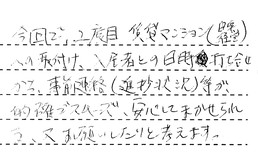 今回で、2度目 賃貸マンション(自宅経営)
への取付け、入居者との日時打ち合せ
から、事前連絡(進抄状況)等が
的確でスムーズ、安心してまかせられ
る、又お願いしたいと考えます。